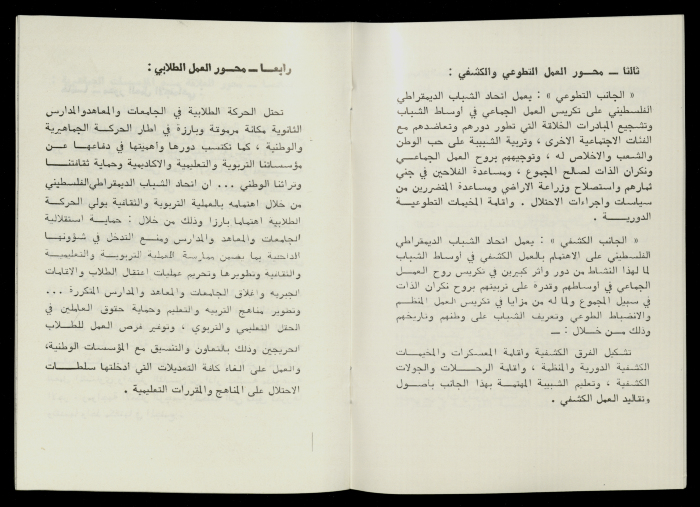 ثالثا ــ محور العمل التطوعي والكشفي :
« الجانب التطوعي » : يعمل اتحاد الشباب الديمقراطي
الفلسطيني على تكريس العمل الجماعي في اوساط الشباب
وتشجيع المبادرات الخلاقة التي تطور دورهم وتعاضدهم مع
الفئات الاجتماعية الاخرى ، وتربية الشبيبة على حب الوطن
والشعب والاخلاص له ، وتوجيههم بروح العمل الجماعي
ونكران الذات لصالح المجموع ، ومساعدة الفلاحين في جني
ثمارهم واستصلاح وزراعة الاراضي ومساعدة المتضررين من
سياسات واجراءات الاحتلال . واقامة المخيمات التطوعية
الدورية .
« الجانب الكشفي » : يعمل اتحاد الشباب الديمقراطي
الفلسطيني على الاهتمام بالعمل الكشفي في اوساط الشباب
لما لهذا النشاط من دور واثر كبيرين في تكريس روح العمل
الجماعي في اوساطهم وقدرة على تربيتهم بروح نكران الذات
في سبيل المجموع ولما له من مزايا في تكريس العمل المنظم
والانضباط الطوعي وتعريف الشباب على وطنهم وتاريخهم
وذلك من خلال : ــ
تشكيل الفرق الكشفية واقامة المعسكرات والمخيمات
الكشفية الدورية والمنظمة ، واقامة الرحلات والجولات
الكشفية ، وتعليم الشبيبة المهتمة بهذا الجانب باصول
وتقاليد العمل الكشفي .
رابعا ــ محور العمل الطلابي :
تحتل الحركة الطلابية في الجامعات والمعاهدوالمدارس
الثانوية مكانة مرموقة وبارزة في اطار الحركة الجماهيرية
والوطنية ، كما تكتسب دورها واهميتها في دفاعها عن
مؤسساتنا التربوية والتعليمية والاكاديمية وحماية ثقافتنا
وتراثنا الوطني ... ان اتحاد الشباب الديمقراطيالفلسطيني
من خلال اهتمامه بالعملية التربوية والثقافية يولي الحركة
الطلابيه اهتماما بارزا وذلك من خلال : حماية استقلالية
الجامعات والمعاهد والمدارس ومنع التدخل في شؤونها
الداخلية بما يضمن ممارسة العملية التربويـة والتعليمية
والثقافيه وتطويرها وتحريم عمليات اعتقال الطلاب والاقامات
الجبريه واغلاق الجامعات والمعاهد والمدارس المتكررة ...
وتطوير مناهج التربيه والتعليم وحماية حقوق العاملين في
الحقل التعليمي والتربوي ، وتوفير فرص العمل للطلاب
الخريجين وذلك بالتعاون والتنسيق مع المؤسسات الوطنية،
والعمل على الغاء كافة التعديلات التي ادخلتها سلطات
الاحتلال على المناهج والمقررات التعليمية .